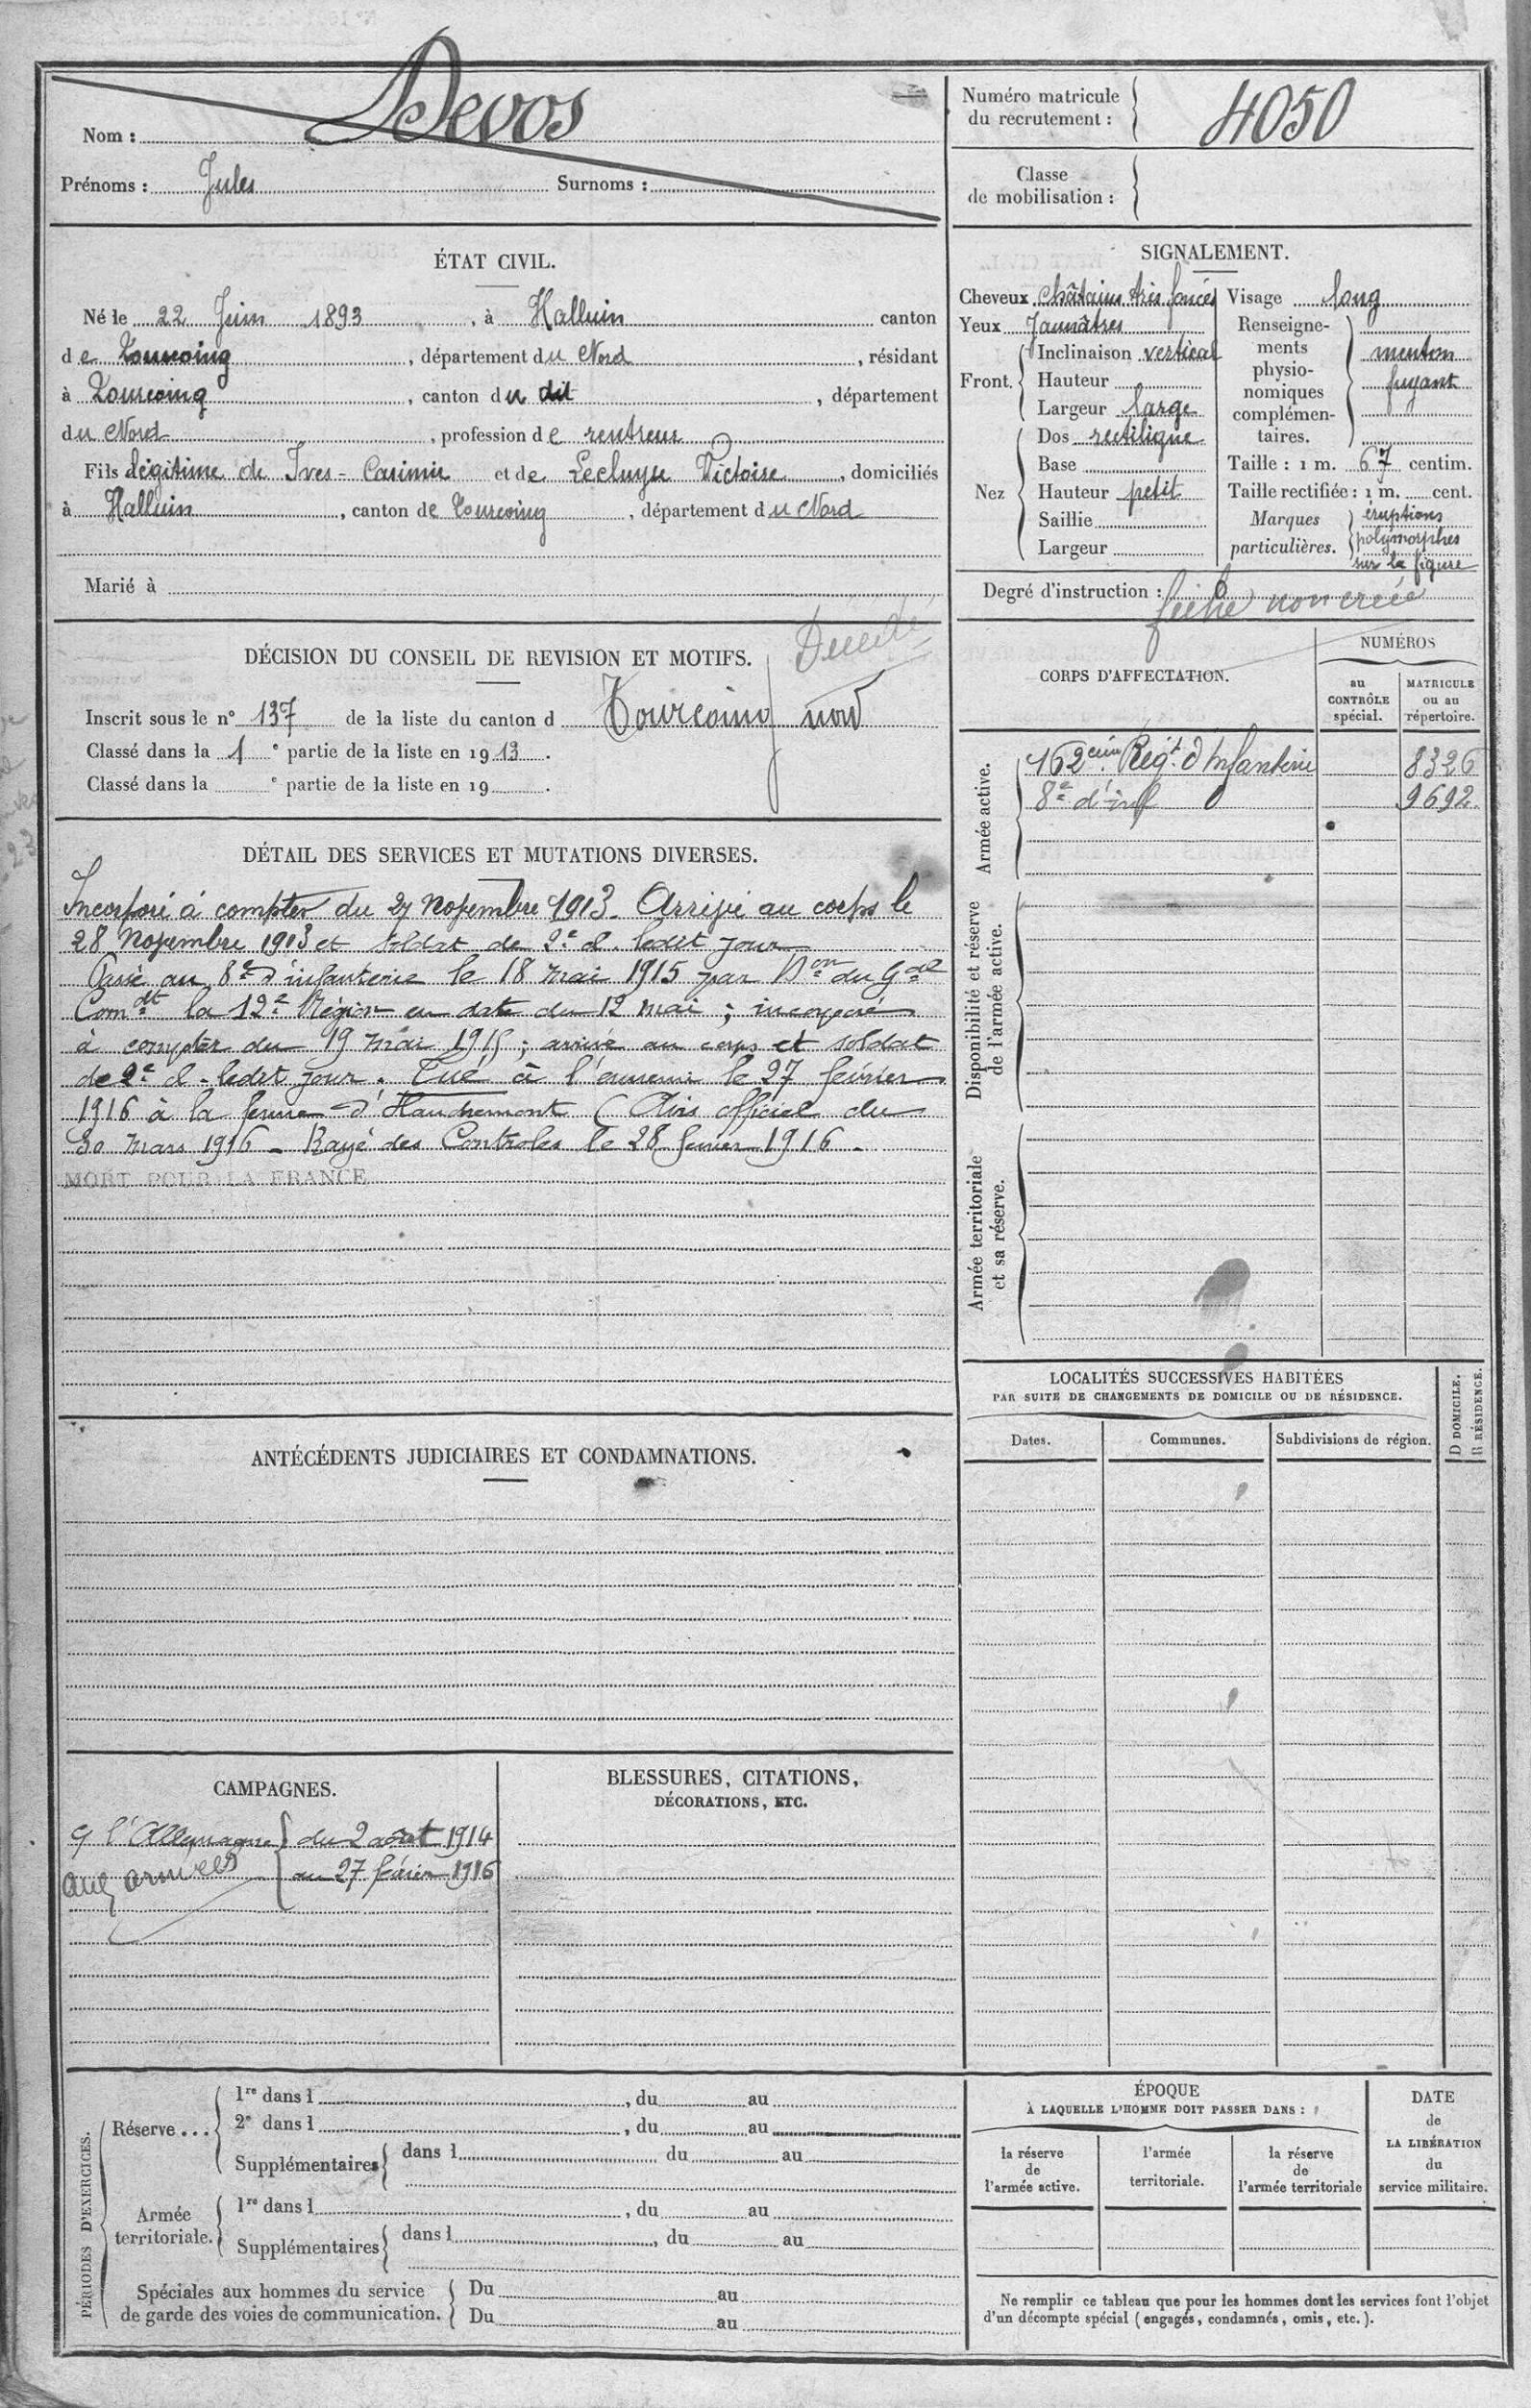 Nom : Devos
Prénoms : Jules Surnoms :
Numéro matricule du recrutement : 4050
Classe de mobilisation :
ÉTAT CIVIL.
Né le 22 Juin 1893, à Halluin canton
de Tourcoing, département du Nord, résidant
à Tourcoing, canton du dit, département
du Nord, profession de rentreur
Fils légitime de Ives-Casimir et de Lecluyse Victoire, domiciliés
à Halluin, canton de Tourcoing, département du Nord
Marié à
SIGNALEMENT.
Cheveux châtains très foncés
Yeux Jaunâtres
Front. Inclinaison vertical
Hauteur
Largeur large
Nez Dos rectiligne
Base
Hauteur petit
Saillie
Largeur
Visage long
Renseignements physionomiques complémentaires. menton fuyant
Taille : 1 m. 67 centim.
Taille rectifiée : 1 m. cent.
Marques particulières. éruptions polymorphes sur la figure
Degré d'instruction :
fiche non créée
DÉCISION DU CONSEIL DE REVISION ET MOTIFS.
Décédé
Inscrit sous le n° 137 de la liste du canton d Tourcoing nord
Classé dans la 1e partie de la liste en 1913.
Classé dans la e partie de la liste en 19 .
CORPS D'AFFECTATION.
NUMÉROS
au CONTRÔLE spécial.
MATRICULE ou au répertoire.
Armée active.
162eme Régt d'Infanterie 8326
8e d'inf 9692
Disponibilité et réserve de l'armée active.
Armée territoriale et sa réserve.
DÉTAIL DES SERVICES ET MUTATIONS DIVERSES.
Incorporé à compter du 27 Novembre 1913. Arrivé au corps le
28 Novembre 1913 et soldat de 2e cl. ledit jour
Passé au 8e d'infanterie le 18 mai 1915 par Don du Gal
Comdt la 12e Région en date du 12 mai ; incorporé
à compter du 19 mai 1915 ; arrivé au corps et soldat
de 2e cl. ledit jour. Tué à l'ennemi le 27 février
1916 à la ferme d'Haudremont (Avis officiel du
30 mars 1916 - Rayé des Contrôles le 28 février 1916 -
MORT POUR LA FRANCE
LOCALITÉS SUCCESSIVES HABITÉES
PAR SUITE DE CHANGEMENTS DE DOMICILE OU DE RÉSIDENCE.
Dates. Communes. Subdivisions de région. D DOMICILE. R RÉSIDENCE.
ANTÉCÉDENTS JUDICIAIRES ET CONDAMNATIONS.
CAMPAGNES.
C/ l'Allemagne du 2 août 1914
aux armées au 27 février 1916
BLESSURES, CITATIONS,
DÉCORATIONS, ETC.
PÉRIODES D'EXERCICES.
Réserve... 1re dans l , du au
2e dans l , du au
Supplémentaires dans l du au
Armée territoriale. 1re dans l , du au
Supplémentaires dans l , du au
Spéciales aux hommes du service Du au
de garde des voies de communication. Du au
ÉPOQUE
À LAQUELLE L'HOMME DOIT PASSER DANS :
la réserve de l'armée active.
l'armée territoriale.
la réserve de l'armée territoriale
DATE de LA LIBÉRATION du service militaire.
Ne remplir ce tableau que pour les hommes dont les services font l'objet
d'un décompte spécial (engagés, condamnés, omis, etc.).